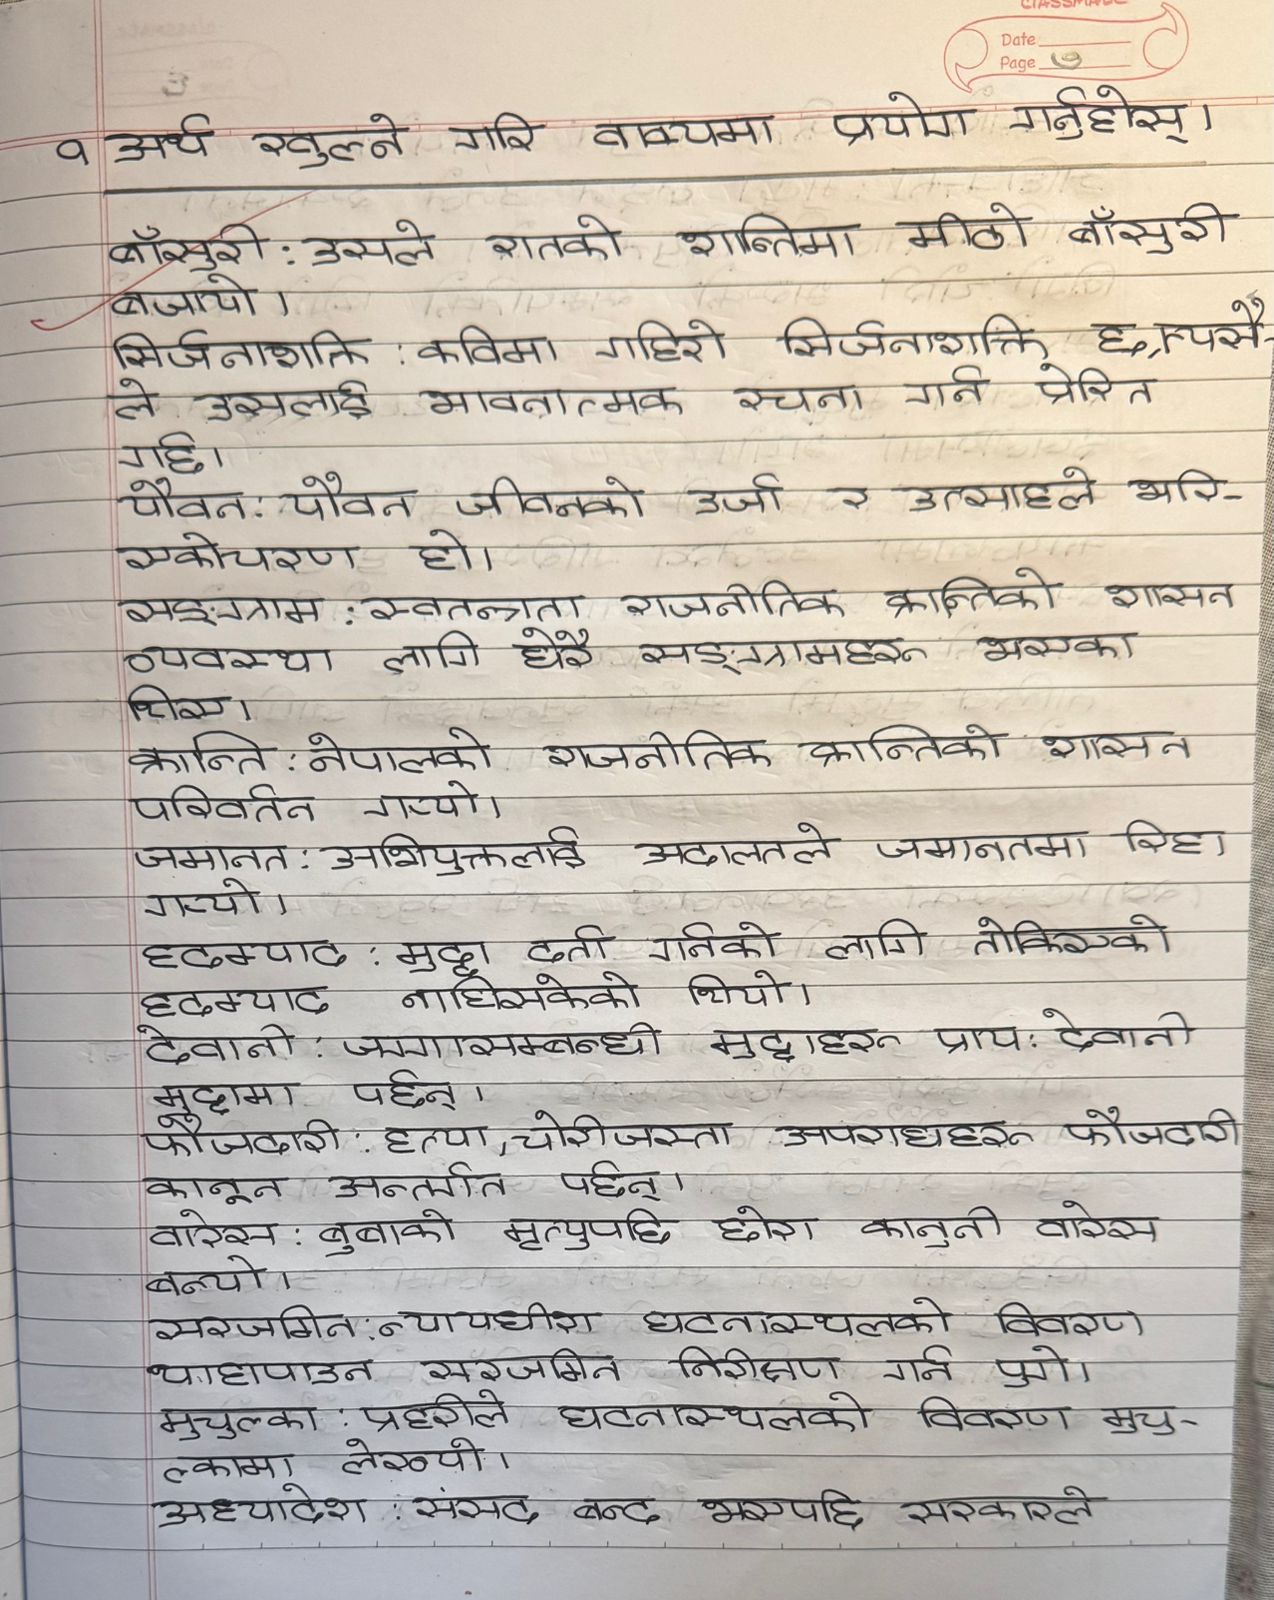 classmate
Date
Page ७
१ अर्थ खुल्ने गरि वाक्यमा प्रयोग गर्नुहोस्।
बाँसुरी : उसले रातको शान्तिमा मीठो बाँसुरी
बजायो।
सिर्जनाशक्ति : कविमा गहिरो सिर्जनाशक्ति छ, त्यसै-
ले उसलाई भावनात्मक रचना गर्न प्रेरित
गर्छ।
यौवन : यौवन जीवनको उर्जा र उत्साहले भरि-
एकोचरण हो।
सङ्ग्राम : स्वतन्त्रता राजनीतिक क्रान्तिको शासन
व्यवस्था लागि धेरै सङ्ग्रामहरू भएका
थिए।
क्रान्ति : नेपालको राजनीतिक क्रान्तिको शासन
परिवर्तन गर्‍यो।
जमानत : अभियुक्तलाई अदालतले जमानतमा रिहा
गर्‍यो।
हदम्याद : मुद्दा दर्ता गर्नको लागि तोकिएको
हदम्याद नाघिसकेको थियो।
देवानी : जग्गासम्बन्धी मुद्दाहरू प्राय: देवानी
मुद्दामा पर्छन्।
फौजदारी : हत्या, चोरीजस्ता अपराधहरू फौजदारी
कानून अन्तर्गत पर्छन्।
वारेस : बुबाको मृत्युपछि छोरा कानुनी वारेस
बन्यो।
सरजमिन : न्यायधीश घटनास्थलको विवरण
थाहापाउन सरजमिन निरीक्षण गर्न पुगे।
मुचुल्का : प्रहरीले घटनास्थलको विवरण मुचु-
ल्कामा लेख्यो।
अध्यादेश : संसद बन्द भएपछि सरकारले